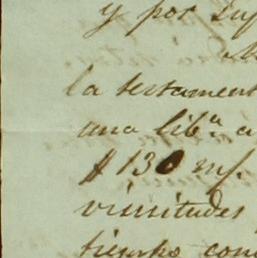 y por sup
la testament
una lib.ª a
$ 130 mf.
visitudes
tiempo con